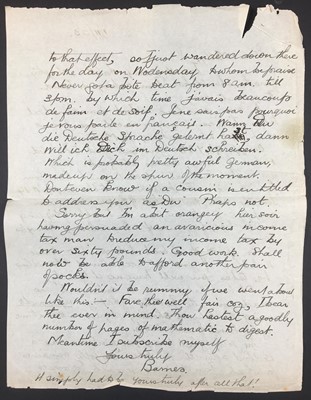 to that effect, so I just wandered down there
for the day on Wednesday & whom be praise
Never got a bite beat from 8 am. till
3 pm. by which time j'avais beaucoup
de faim et de soif. Je ne sais pas pourquoi
je vous parle en français. Wann Du
die Deutsche Sprache gelernt hast, dann
will ich Dich im Deutsch schreiben.
Which is probably pretty awful German,
made up on the spur of the moment.
Don't even know if a cousin is entitled
to address you as 'Du'. P'haps not.
Sorry but I'm a bit orangey hier soir
having persuaded an avaricious income
tax man to reduce my income tax by
over sixty pounds. Good work. Shall
now be able to afford another pair
of socks.
Wouldn't it be funny if we went about
like this:- Fare thee well fair coz, I bear
thee ever in mind. Thou hastest a goodly
number of pages of mathematic to digest.
Meantime I subscribe myself
Yours truly
Barnes
H simply had to be Yours truly after all that!